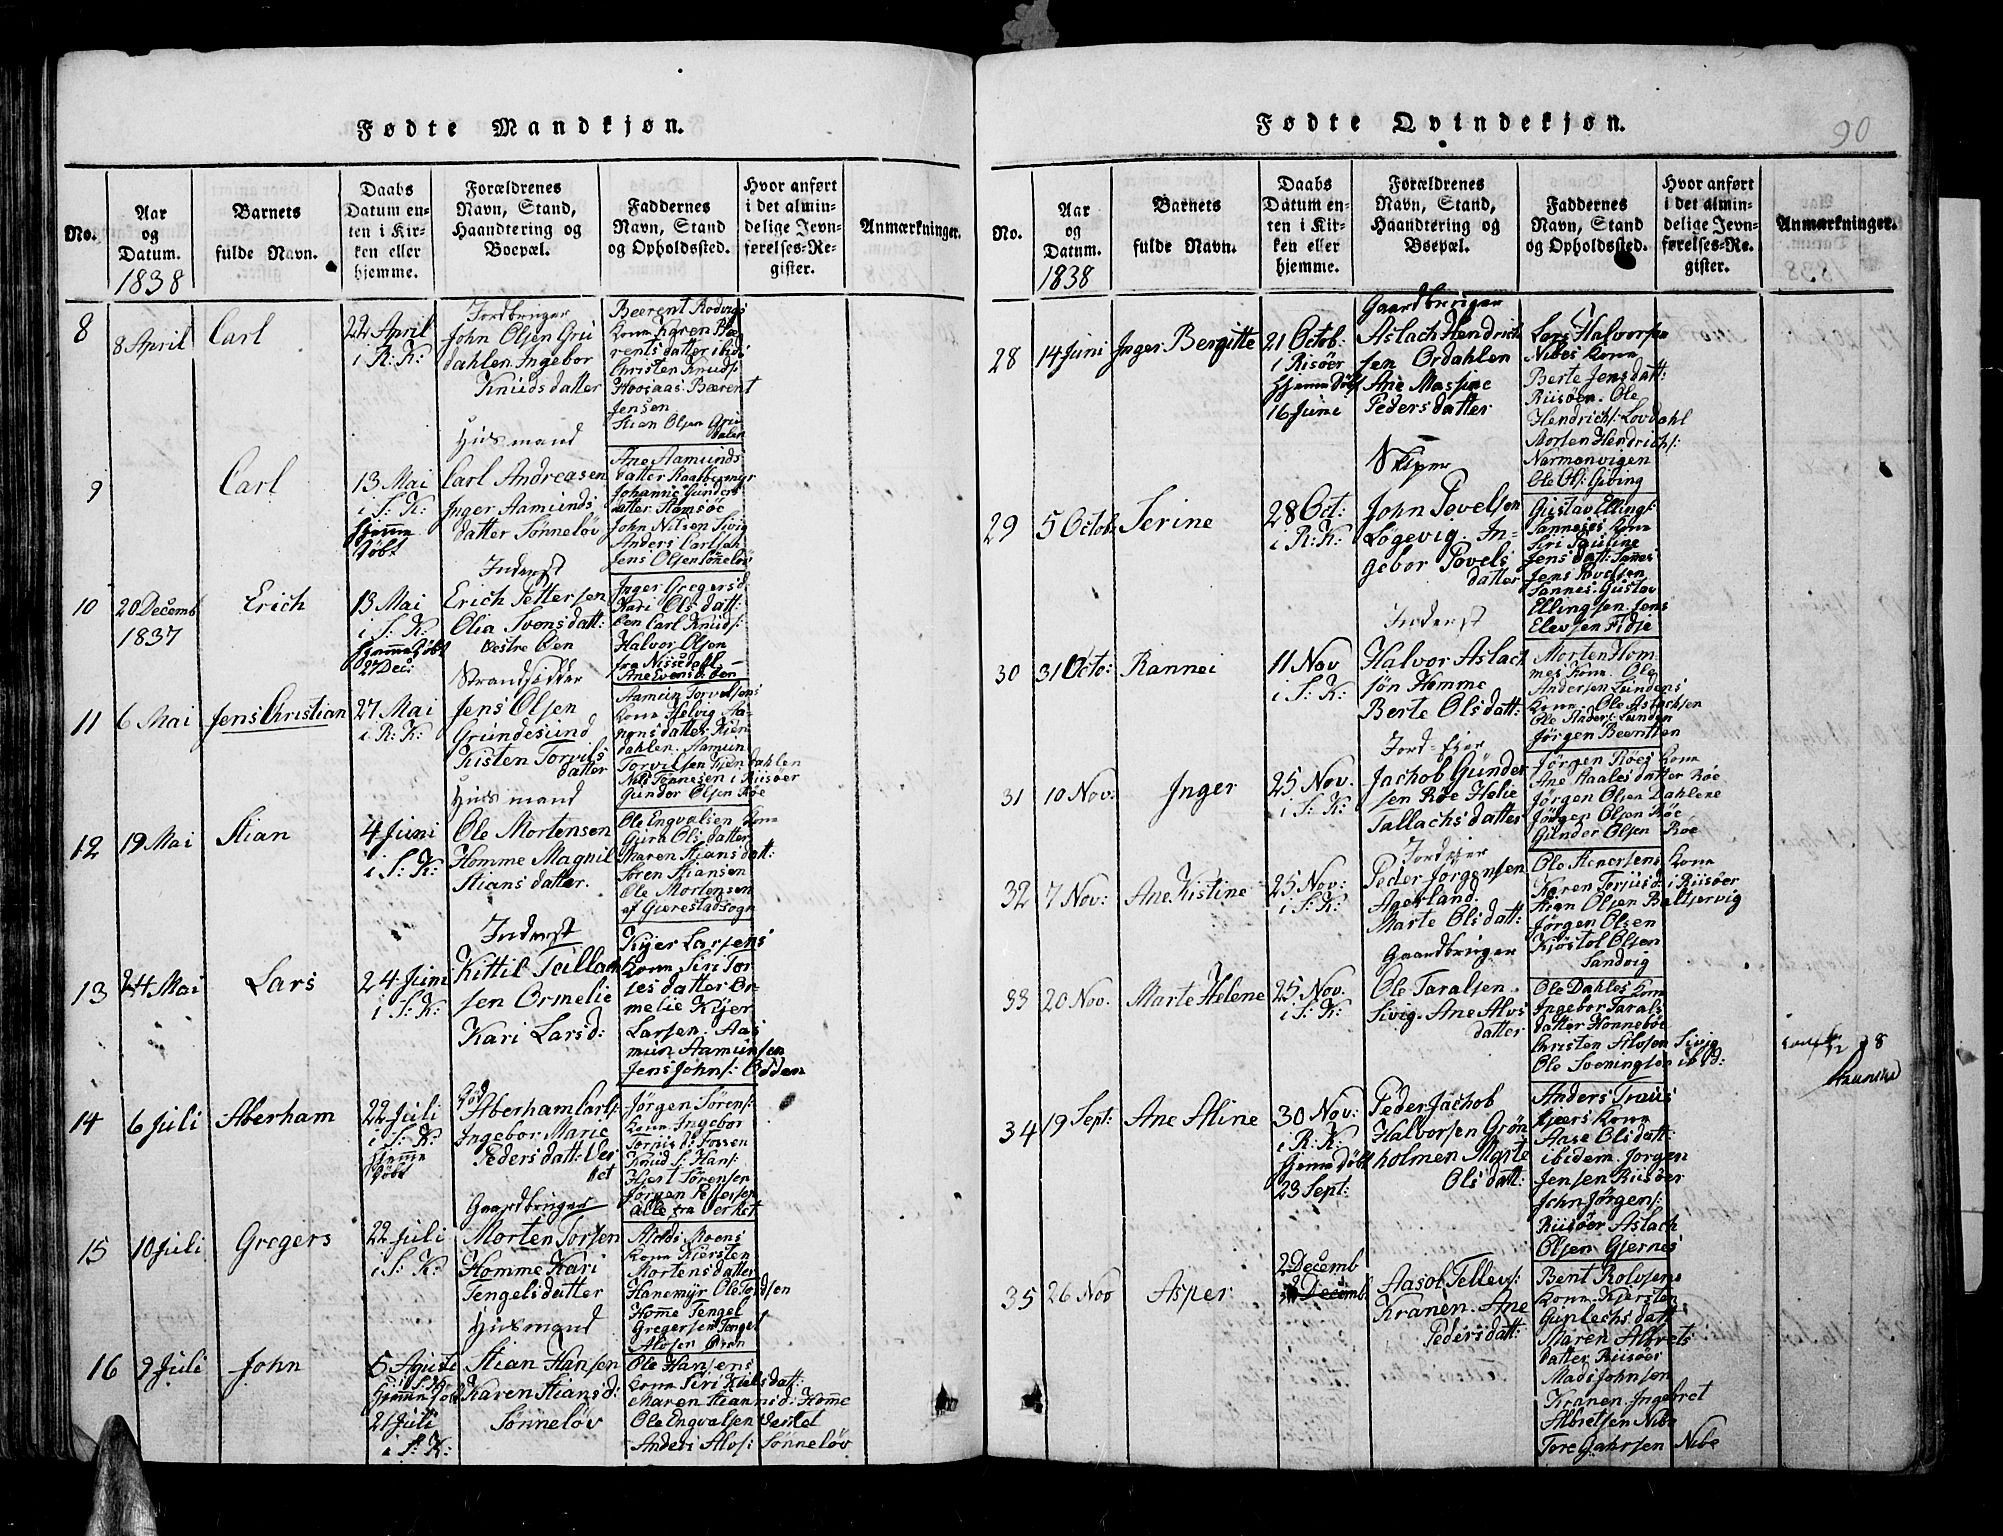 Fødte Mandkjøn.
No.
Aar
og
Datum.
1838
Barnets
fulde Navn.
Daabs
Datum en-
ten i Kir-
ken eller
hjemme.
Forældrenes
Navn, Stand,
Haandtering og
Boepæl.
Faddernes
Navn, Stand
og Opholdssted.
Hvor anført
i det almin-
delige Jevn-
førelses-Re-
gister.
Anmærkninger.
8
8 April
Carl
22 April
i R: K:
Jordbruger
John Olsen Gru
dahlen Ingebor
Knudsdatter
Beerent Rodvigs
Kone Karen Bee
rentsdatter ibid:
Christen Knuds:
Hoojaas: Bærent
Jensen
Stian Olsen Gru
dalen
9
Carl
13 Mai
i S: K:
Hjemme
døbt
Huusmand
Carl Andreasen
Inger Aamunds
datter Sønneløv
Ane Aamunds
datter
Johanne Gunders
datter
John Nilsen Sivig
Anders Carlsen
Jens Olsen Sønneløv
10
20 Decemb
1837
Erich
13 Mai
i S: K:
Hjemme døbt
27 Dec:
Inderst
Erich Pettersen
Olia Svensdatt:
Vestre Øen
Inger Gregersd:
Kari Olsdatt:
Øen Carl Knuds:
Halvor Olsen
fra Nissedahl
Ane Svensd: Øen
11
6 Mai
Jens Christian
27 Mai
i R: K:
Strandsidder
Jens Olsen
Grundesund
Kisten Torvils
datter
Aamun Torvelsens
Kone Helvig Aa-
monsdatter Kien
dahlen. Aamun
Torvilsen Kiendahlen
Nils Tønnesen i Riisøer
Gunder Olsen Røe
12
19 Mai
Stian
4 Juni
i S: K:
Huusmand
Ole Mortensen
Homme Magnil
Stiansdatter.
Ole Engvalsen Kone
Guro Olsdatter
Maren Stiansdatt:
Søren Stiansen
Ole Mortensen
af Gjerestadsogn
13
24 Mai
Lars
24 Juni
i S: K:
Inderst
Kittil Tallach
sen Ormelie
Kari Larsd:
Kijer Larsens
Kone Siri Tor-
jesdatter Or-
melie Kijer
Larsen. Aas
mun Aamunsen
Jens Johns: Odden
14
6 Juli
Aberham
22 Juli
i S: K:
Hjemme
døbt
Aberham Carls:
Ingebor Marie
Pedersdatt: Ver
ket
Jørgen Sørens:
Kone Ingebor
Torjusd: Fossen
Knud S: Hans:
Hjert Sørensen
Jørgen Pettersen
alle fra Verket
15
10 Juli
Gregers
22 Juli
i S: K:
Gaardbruger
Morten Torsen
Homme Kari
Tengelsdatter
Alvdi Moens
Kone Kiersten
Mortensdatter
Hanemyr Ole Tordsen
Homme Tengel
Gregersen Tengel
Alofsen Øren
16
9 Juli
John
5 Agust
i S: K:
Hjemme døbt
21 Juli
i S: K:
Huusmand
Stian Hansen
Karen Stiansd:
Sønneløv
Ole Hansens
Kone Siri Kielsdatt:
Maren Stiansd: Homme
Ole Engvalsen
Anders Alvs: Sønneløv
Fødte Qvindekjøn.
90
No.
Aar
og
Datum.
1838
Barnets
fulde Navn.
Daabs
Datum en-
ten i Kir-
ken eller
hjemme.
Forældrenes
Navn, Stand,
Haandtering og
Boepæl.
Faddernes
Navn, Stand
og Opholdssted.
Hvor anført
i det almin-
delige Jevn-
førelses-Re-
gister.
Anmærkninger.
28
14 Juni
Inger Bergitte
21 Octob:
i Risøer
Hjemmedøbt
16 June
Gaardbruger
Aslach Hendrich
sen Ordahlen
Ane Massine
Pedersdatter
Lars Halvorsen
Nibes Kone
Berte Jensdatt:
Riisøer. Ole
Hendrichs: Lovdahl
Morten Hendrichs:
Normanvigen
Ole Ols: Giving
29
5 Octob:
Serine
28 Oct:
i R: K:
Skiper
John Povelsen
Løgevig. In-
gebor Povels
datter
Gustav Ellings:
Sannesøs Kone
Siri Pauline
Jensdatt: Sannes
Jens Povelsen
Sannes. Gustav
Ellingsen Jens
Elevsen Fidje
30
31 Octo:
Rannei
11 Nov
i S: K:
Inderst
Halvor Aslach
søn Homme
Berte Olsdatt:
Morten Hom
mes Kone. Ole
Andersen Lundens
Kone. Ole Aslachsen
Ole Anders: Lunden
Jørgen Beeritten
31
10 Nov:
Inger
25 Nov.
i S: K:
Jord-Ejer
Jachob Gunder
sen Røe Helie
Tallachsdatter
Jørgen Røes Kone
Ane Aalesdatter Røe
Jørgen Olsen Dahlene
Jørgen Olsen Røe
Gunder Olsen Røe
32
7 Nov:
Ane Kistine
25 Nov:
i S: K:
Jordejer
Peder Jørgensen
Agerland.
Marte Olsdatt:
Kone
Karen Torjusd: i Riisøer
Stian Olsen Baltservig
Jørgen Olsen
Kjøstol Olsen
Sandvig
33
20 Nov.
Marte Helene
25 Nov.
i S: K:
Gaardbruger
Ole Taralsen.
Sivig. Ane Alvs
datter
Ole Dahles Kone
Ingebor Tarals
datter Hønnebøe
Christen Alvsen Sivig
Ole Sveningsen ibid:
34
19 Sept:
Ane Aline
30 Nov:
i R: K:
Hjemmedøbt
23 Sept:
Peder Jachob
Halvorsen Grøn
holmen Marte
Olsdatt:
Anders Traus
kjers Kone
Aase Olsdatt:
ibidem. Jørgen
Jensen Riisøer
John Jørgens:
Riisøer Aslach
Olsen Gjernes
35
26 Nov
Asper
2 Decemb
Decemb
Aasol Tellevs:
Kranen. Ane
Pedersdatt:
Bent Rolvsens
Kone. Kjersten
Gunlechsdatt:
Maren Albrets
datter Riisøer
Mads Johnsen
Kranen Ingebret
Albretsen Nibe
Tore Gahrsen Nibe